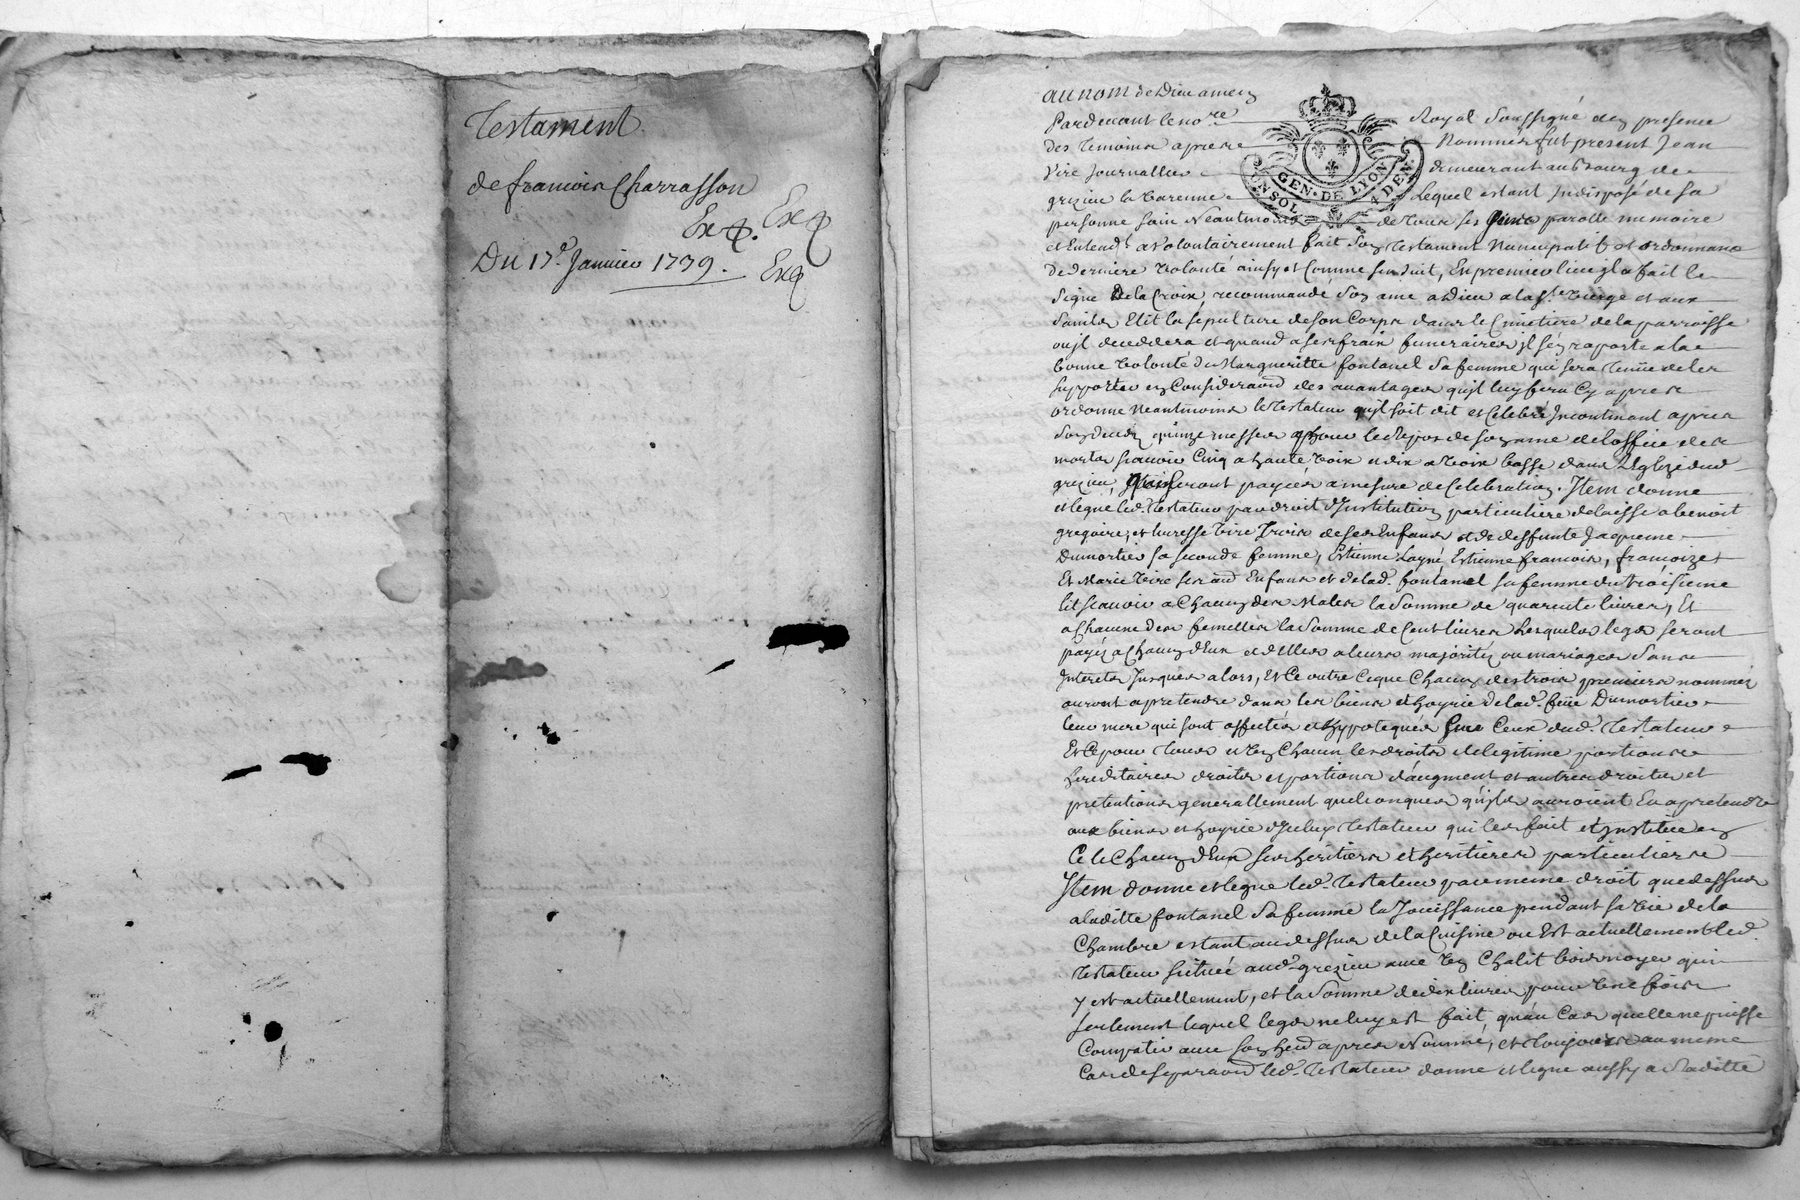 Testament
de francois Charrasson
Exp. Exp
Du 17e. Janvier 1739. Exp
au nom de Dieu amen
Pardevant le nore. Royal soussigné en presence
des temoins apres nommés fut present Jean
Vire Journallier demeurant au Bourg de
grezieu la Varenne Lequel estant Indisposé de sa
personne sain Neantmoins de tous ses sens parolle memoire
et Entendt. a volontairement fait son testament Nuncupatif et ordonnance
de derniere volonté ainsy et Comme sensuit, En premier lieu il a fait le
signe De la Croix, recommandé son ame a Dieu a la ste. vierge et aux
saints Elit la sepulture de son Corps dans le Cimetiere de la parroisse
ou il deceddera et quand a ses fraix funeraires il sen raporte a la
bonne volonté de Margueritte fontanel sa femme qui sera tenüe de les
supporter en Consideraon des avantages quil luy fera Cy apres
ordonne Neantmoins le testateur quil soit dit et Celebré Incontinant apres
son deces quinze messes pour le Repos de son ame de loffice des
morts scavoir Cinq a haute voix et dix a voix basse dans L'Eglize dud.
grezieu, qui seront payées a mesure de Celebration. Item donne
et legue led. testateur par droit d'Institution particuliere delaisse a benoit
gregoire, et Vire Trois de ses Enfans et de deffunte Jaqueme
Dumortier sa seconde femme, Estienne Estienne francois, françoize
Et Marie Vire ses Enfans et de lad. fontanel sa femme du troisieme
lit scavoir a Chacun des Males la somme de quarente livres, Et
a Chacune des femelles la somme de Cent livres Lesquels legs seront
payés a Chacun d'Eux et d'Elles a leurs majorités ou mariages sans
Interets Jusques alors, Et Ce outre Ceque Chacun des trois premiers nommés
auront a pretendre dans les biens et hoyrie de lad. feüe Dumortier
leur mere qui sont affectés et hypotequés sur Ceux dud. testateur
Et Ce pour tous et un Chacun les droits de legitime portions
hereditaires droits et portions d'augment et autres droits et
pretentions generallement quelconques quils auroient Eu a pretendre
aux biens et hoyrie d'Iceluy testateur qui les fait et Institue en
Ce le Chacun d'Eux ses heritiers et heritieres particuliers
Item donne et legue led. testateur par meme droit que dessus
a laditte fontanel sa femme la Jouissance pendant sa vie de la
Chambre estant au dessus de la Cuisine ou Est actuellement led.
testateur scituée aud. grezieu avec un Chalit bois noyer qui
y est actuellement, et la somme de dix livres pour une fois
seulement lequel legs ne luy est fait, qu'au Cas quelle ne puisse
Compatir avec son herd. apres Nommé, et toujours au meme
Cas de separaon led. testateur donne et legue aussy a laditte
GEN. DE LYON